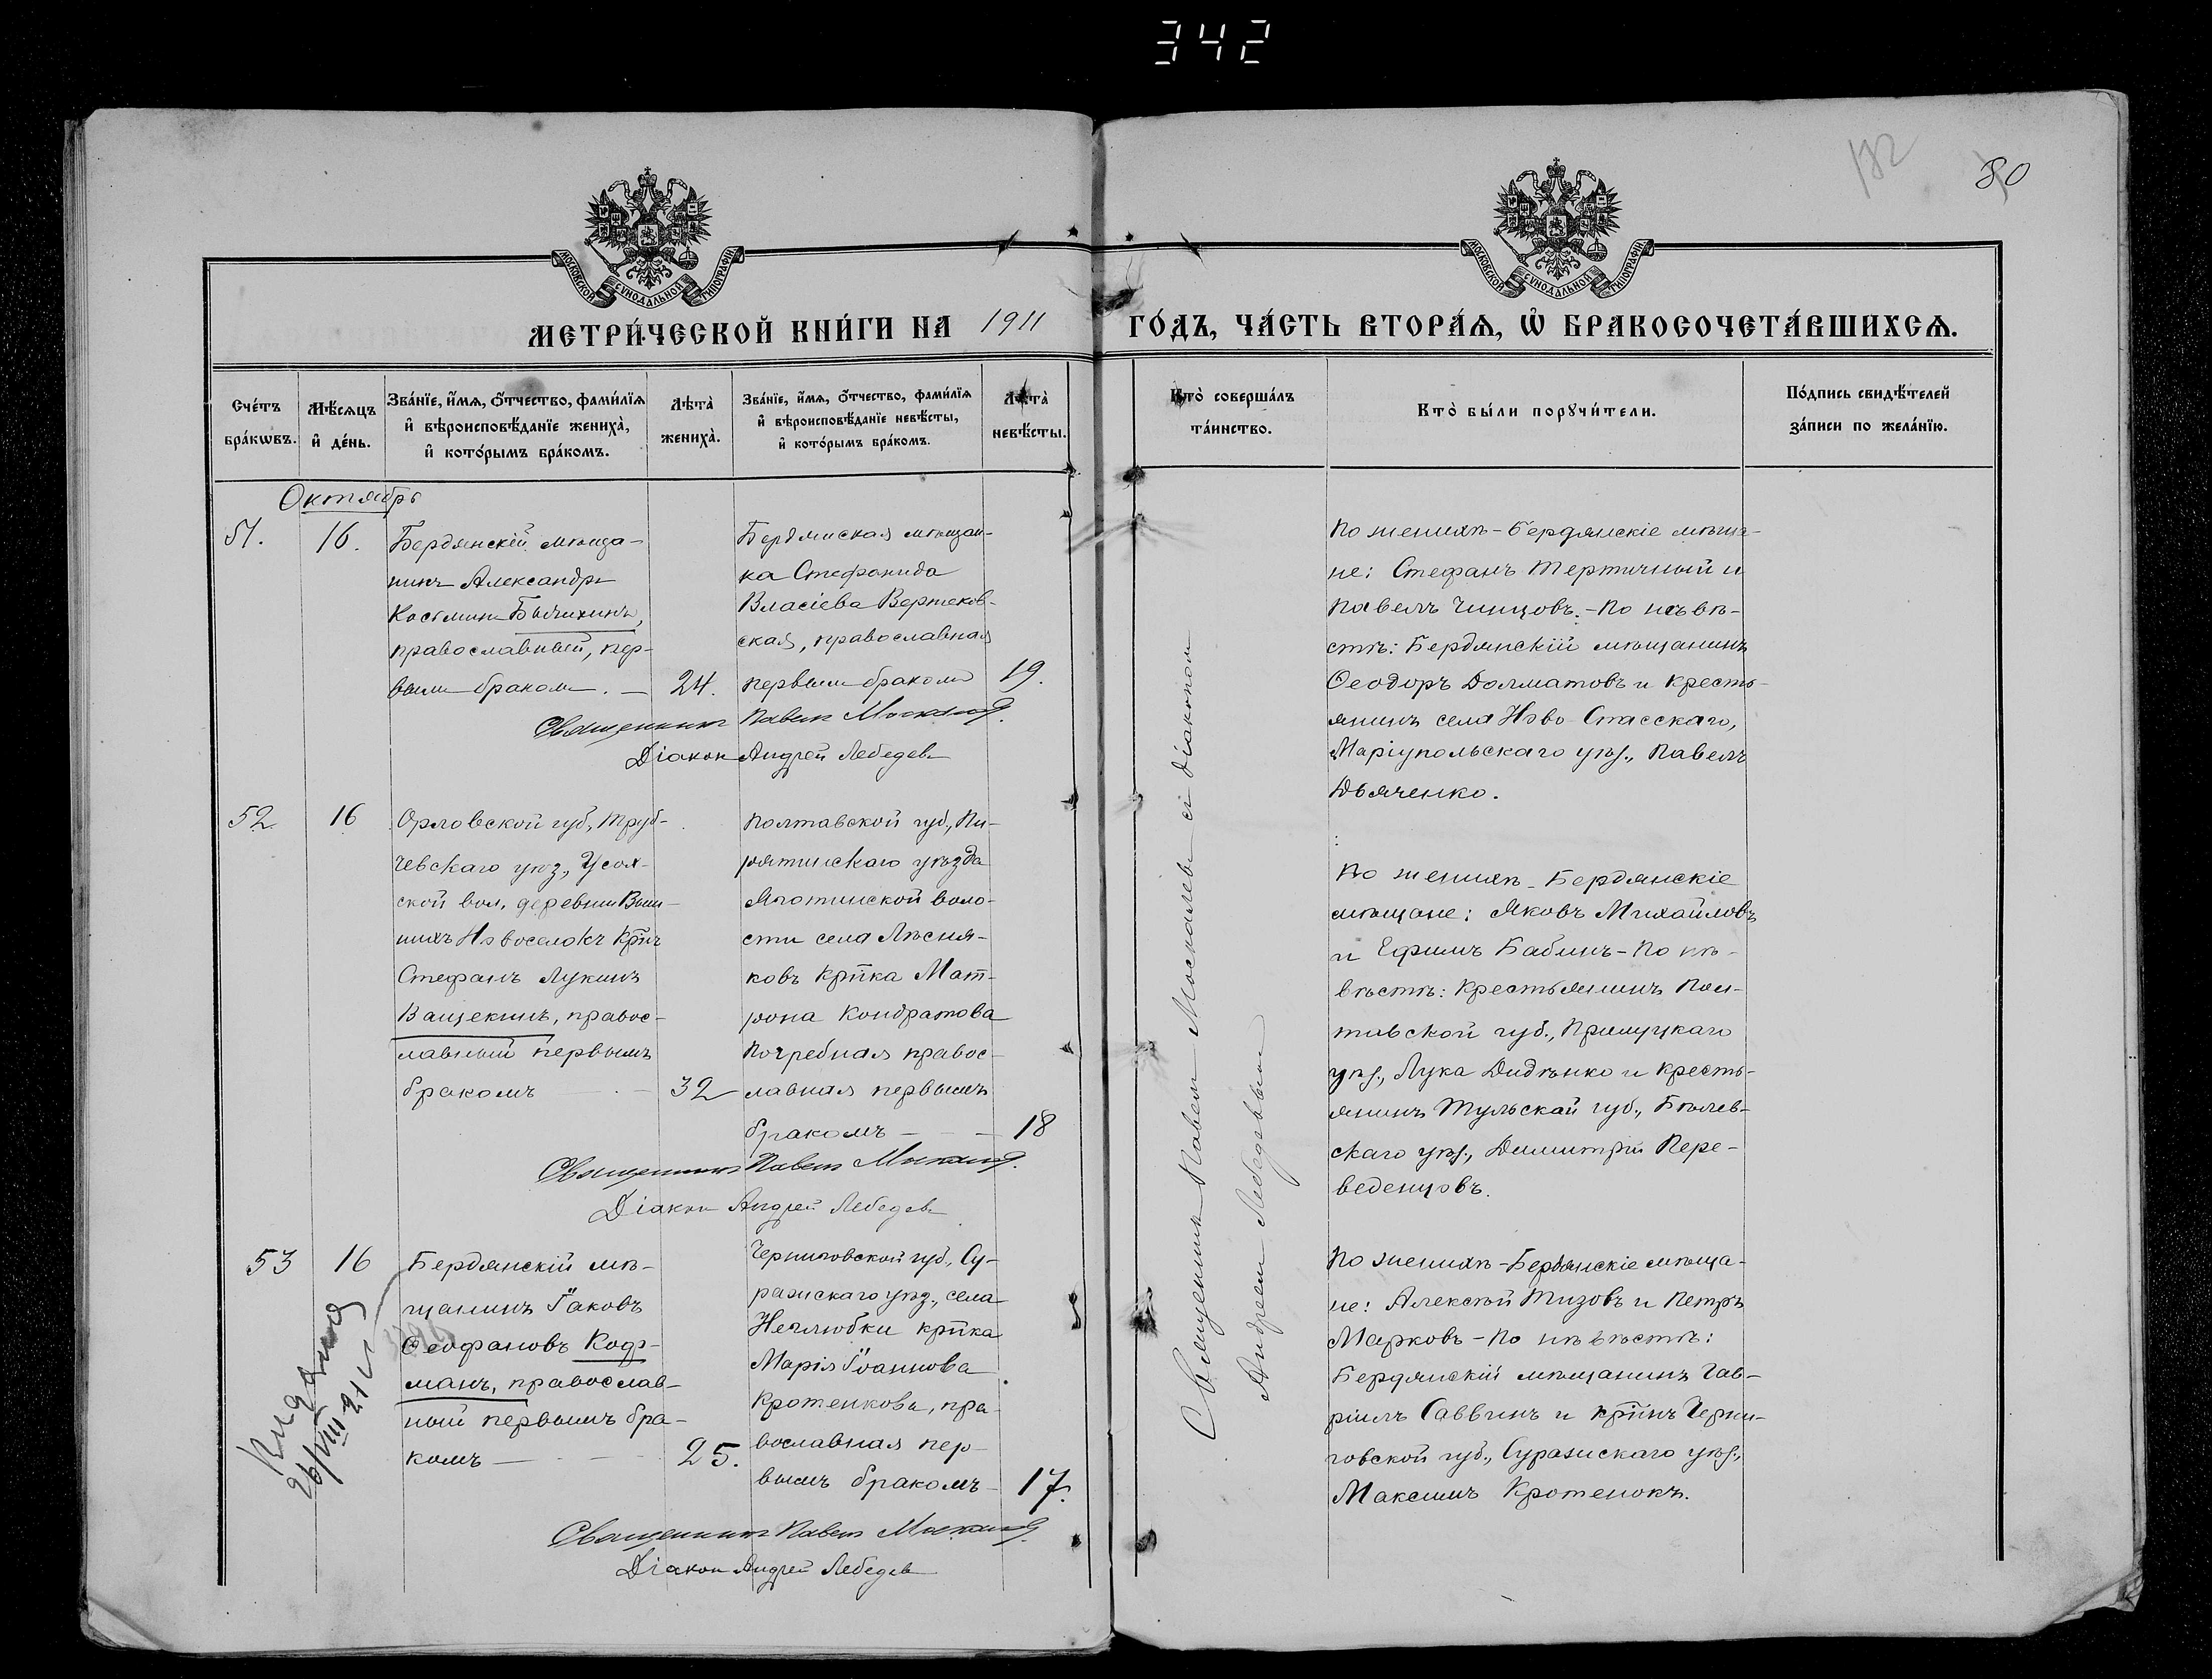 342
182
80
МОСКОВСКОЙ СУНОДАЛЬНОЙ ТИПОГРАФІИ
МОСКОВСКОЙ СУНОДАЛЬНОЙ ТИПОГРАФІИ
МЕТРИ́ЧЕСКОЙ КНИ́ГИ НА 1911
ГО́ДЪ, ЧА́СТЬ ВТОРА́Ѧ, Ѡ҆ БРАКОСОЧЕТА́ВШИХСѦ.
Сче́тъ бра́кѡвъ.
Мѣ́сѧцъ и҆ де́нь.
Зва́нїе, и҆́мѧ, ѻ҆́тчество, фами́лїѧ и҆ вѣроисповѣ́данїе жениха̀, и҆ кото́рымъ бра́комъ.
Лѣта̀ жениха̀.
Зва́нїе, и҆́мѧ, ѻ҆́тчество, фами́лїѧ и҆ вѣроисповѣ́данїе невѣ́сты, и҆ кото́рымъ бра́комъ.
Лѣта̀ невѣ́сты.
Кто̀ соверша́лъ та́инство.
Кто̀ бы́ли порꙋчи́тели.
По́дпись свидѣ́телей за́писи по жела́нїю.
Октябрь
51.
16.
Бердянскій мѣща-
нинъ Александръ
Космин Бычихинъ,
православный, пер-
вым браком. —
24.
Бердянская мѣщан-
ка Стефанида
Власіева Вертеков-
ская, православная
первым браком
19.
Священник Павел Москалев.
Діакон Андрей Лебедев
По женихѣ - Бердянскіе мѣща-
не: Стефанъ Тертичный и
Павелъ Чинцовъ. - По невѣ-
стѣ: Бердянскій мѣщанинъ
Ѳеодоръ Долматовъ и кресть-
янинъ села Ново-Спасскаго,
Маріупольскаго уѣз., Павелъ
Дьяченко.
52
16
Орловской губ., Труб-
чевскаго уѣз., Усох-
ской вол., деревни Выш-
нихъ Новоселокъ крнъ
Стефанъ Лукинъ
Ващекинъ, правос-
лавный первымъ
бракомъ
32
Полтавской губ., Пи-
рятинскаго уѣзда
Яготинской воло-
сти села Лѣсня-
ковъ крпка Мат-
рона Кондратова
Погребная правос-
лавная первымъ
бракомъ
18
Священник Павел Москалев.
Діакон Андрей Лебедев
По женихѣ - Бердянскіе
мѣщане: Яковъ Михайловъ
и Ефимъ Бабинъ - По не-
вѣстѣ: крестьянинъ Пол-
тавской губ., Прилуцкаго
уѣз., Лука Дидѣнко и кресть-
янинъ Тульской губ., Бѣлев-
скаго уѣз., Димитрій Пере-
веденцовъ.
53
16
Бердянскій мѣ-
щанинъ Іаковъ
Ѳеофановъ Коф-
манъ, православ-
ный первымъ бра-
комъ
25.
Черниговской губ., Су-
ражскаго уѣзд., села
Неглюбки крпка
Марія Іоаннова
Кротенкова, пра-
вославная пер-
вымъ бракомъ
17.
Священник Павел Москалев.
Діакон Андрей Лебедев
По женихѣ - Бердянскіе мѣща-
не: Алексѣй Тизовъ и Петръ
Марковъ - По невѣстѣ:
Бердянскій мѣщанинъ Гав-
ріилъ Саввинъ и крнинъ Черни-
говской губ., Суражскаго уѣз.,
Максимъ Кротенокъ.
Выдана
26/VIII 21
Священник Павел Москалев с діаконом
Андреем Лебедевым